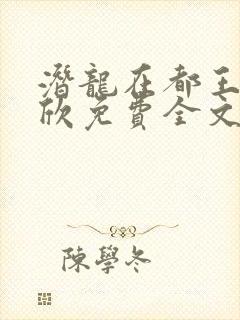 潛龍在都王
欣免費全文
陳學冬